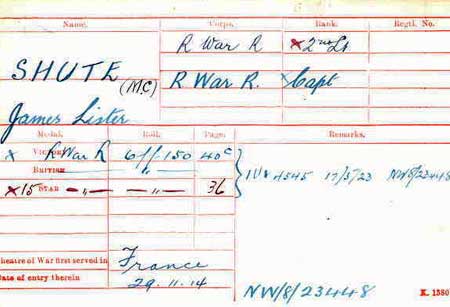 Name. Corps. Rank. Regtl. No.
R War R × 2nd Lt
SHUTE (M.C) R War R. × Capt
James Lister
Medal. Roll. Page. Remarks.
× VICTORY R War R 0/1/150 40c
BRITISH —"— 4545 17/5/23 NW/8/23448
×15 STAR —"— —"— 36
Theatre of War first served in France
Date of entry therein 29.11.14
NW/8/23448 K. 1380